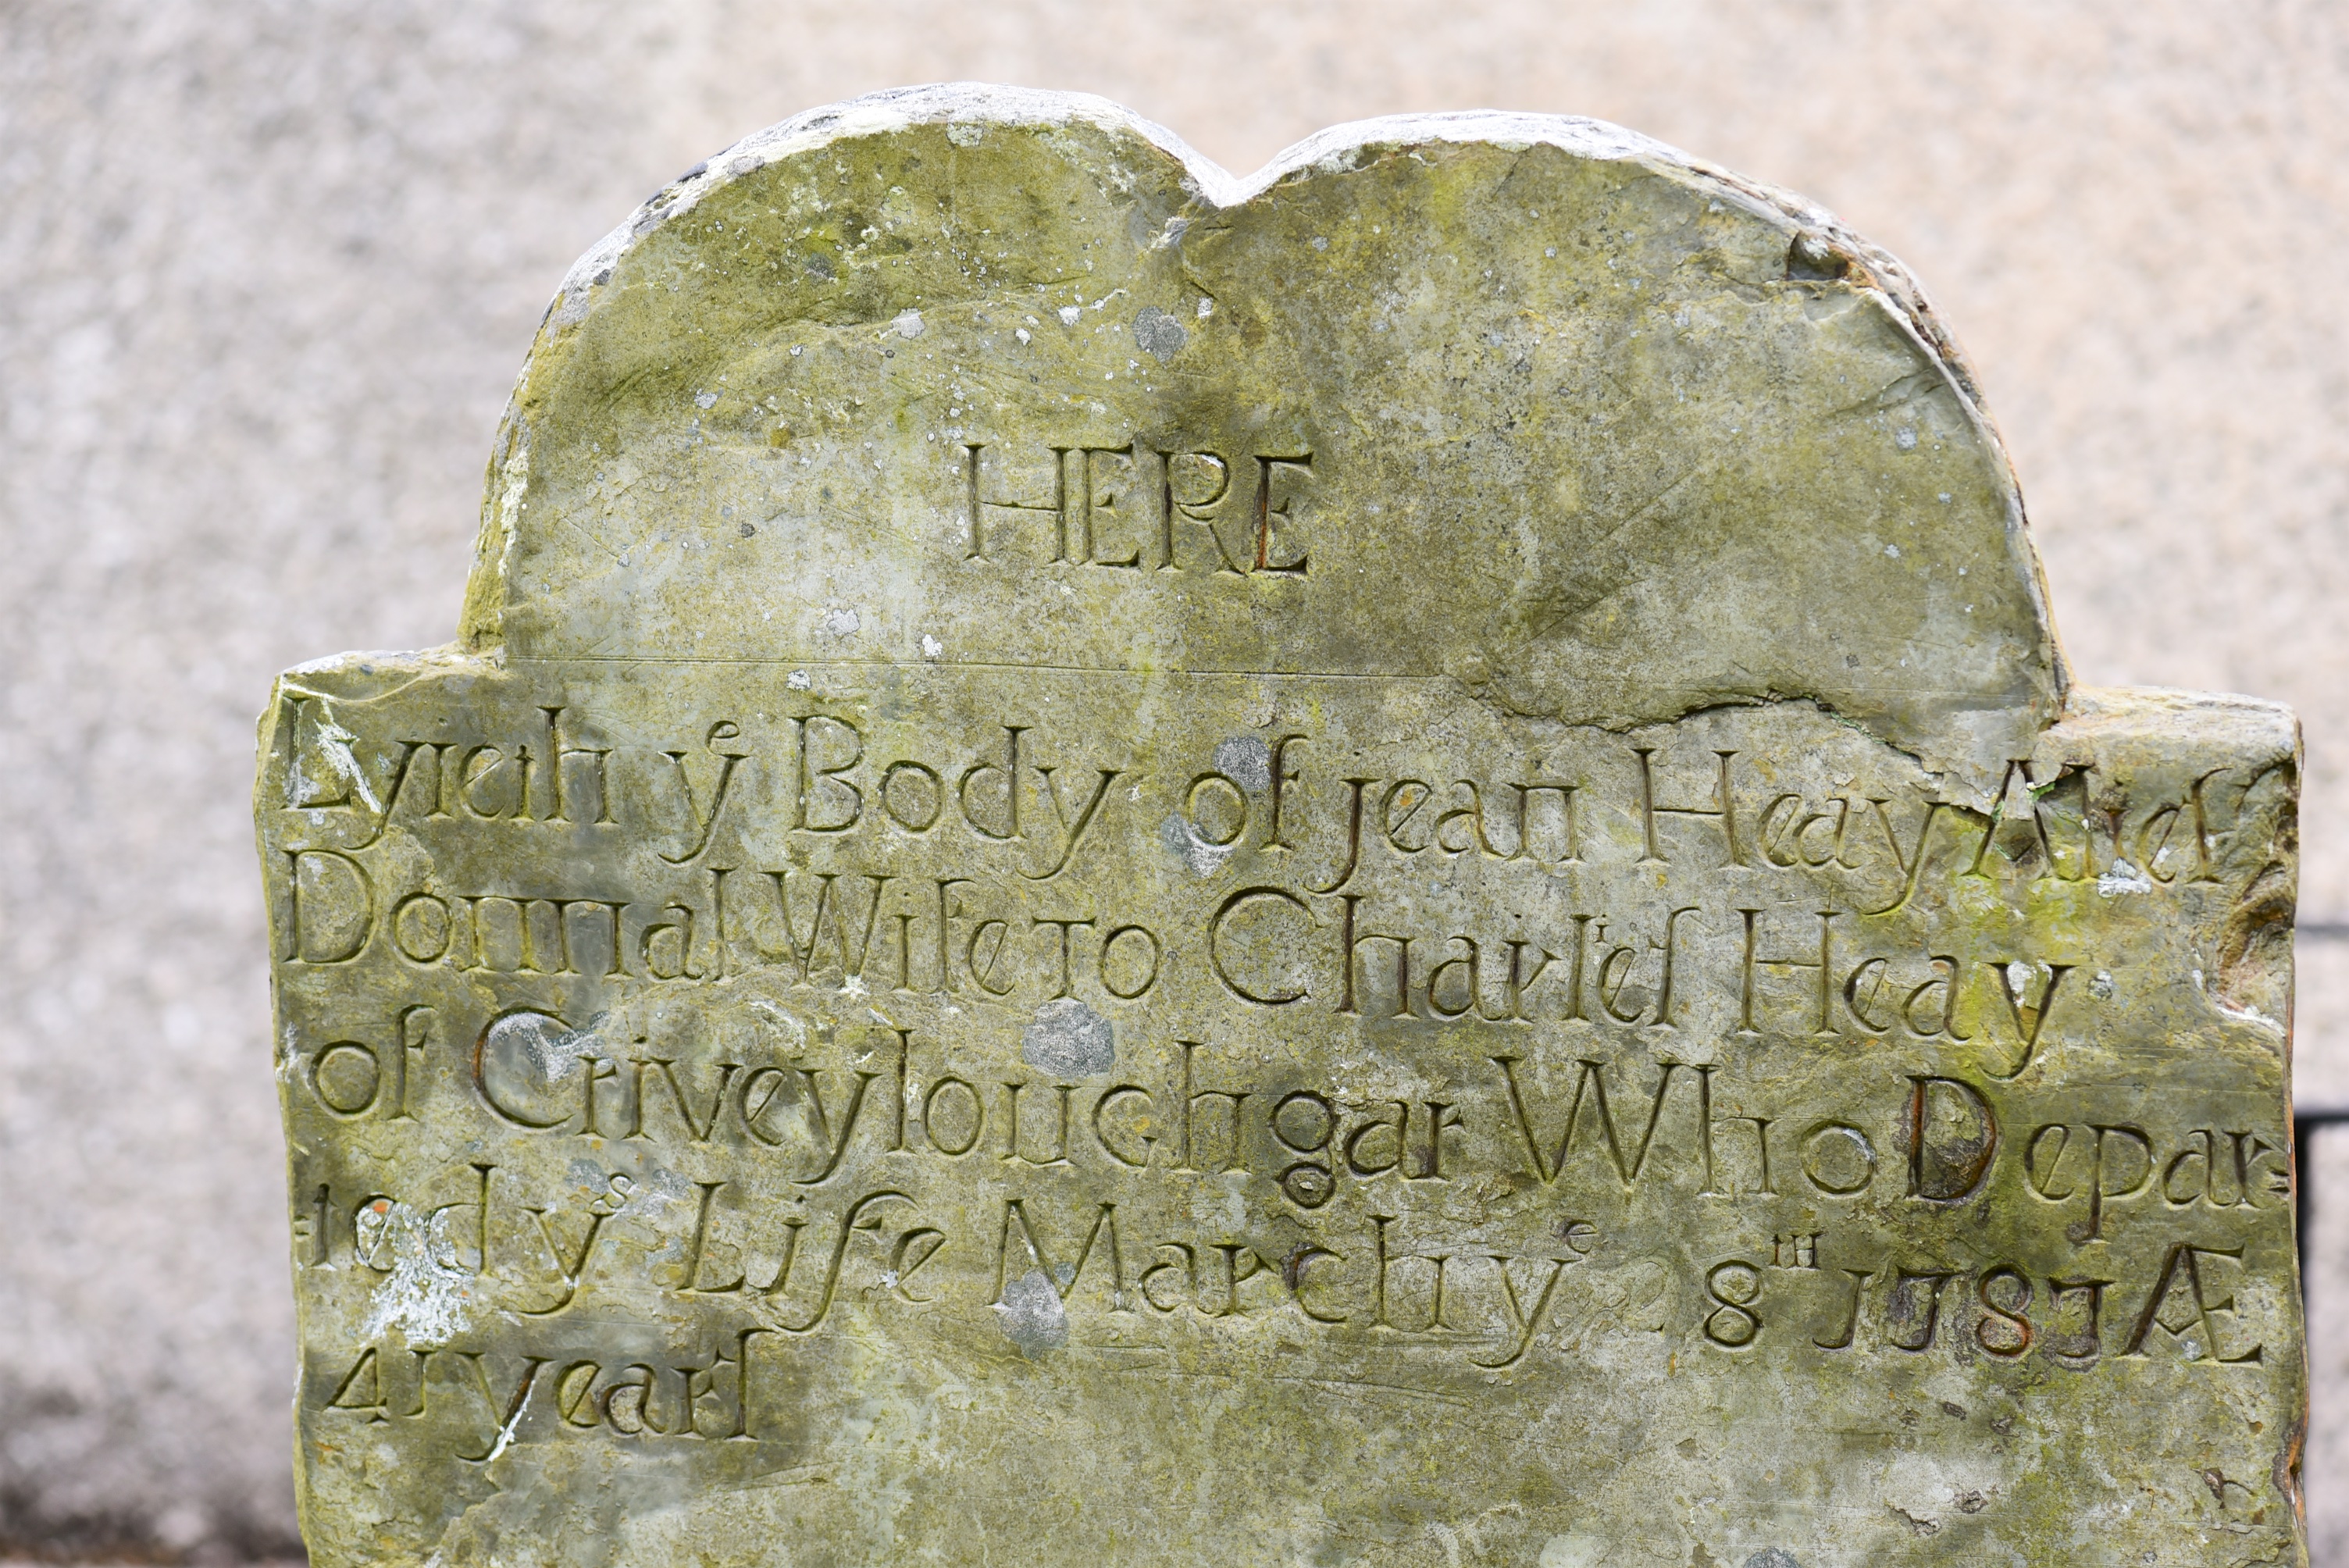 HERE
Lyieth yᵉ Body of jean Heay Alieſ
Donnal Wife TO Charleſ Heay
of Criveyloughgar Who Depar=
=ted yˢ Life March yᵉ 8ᵀᴴ 1787 Æ
41 yearſ